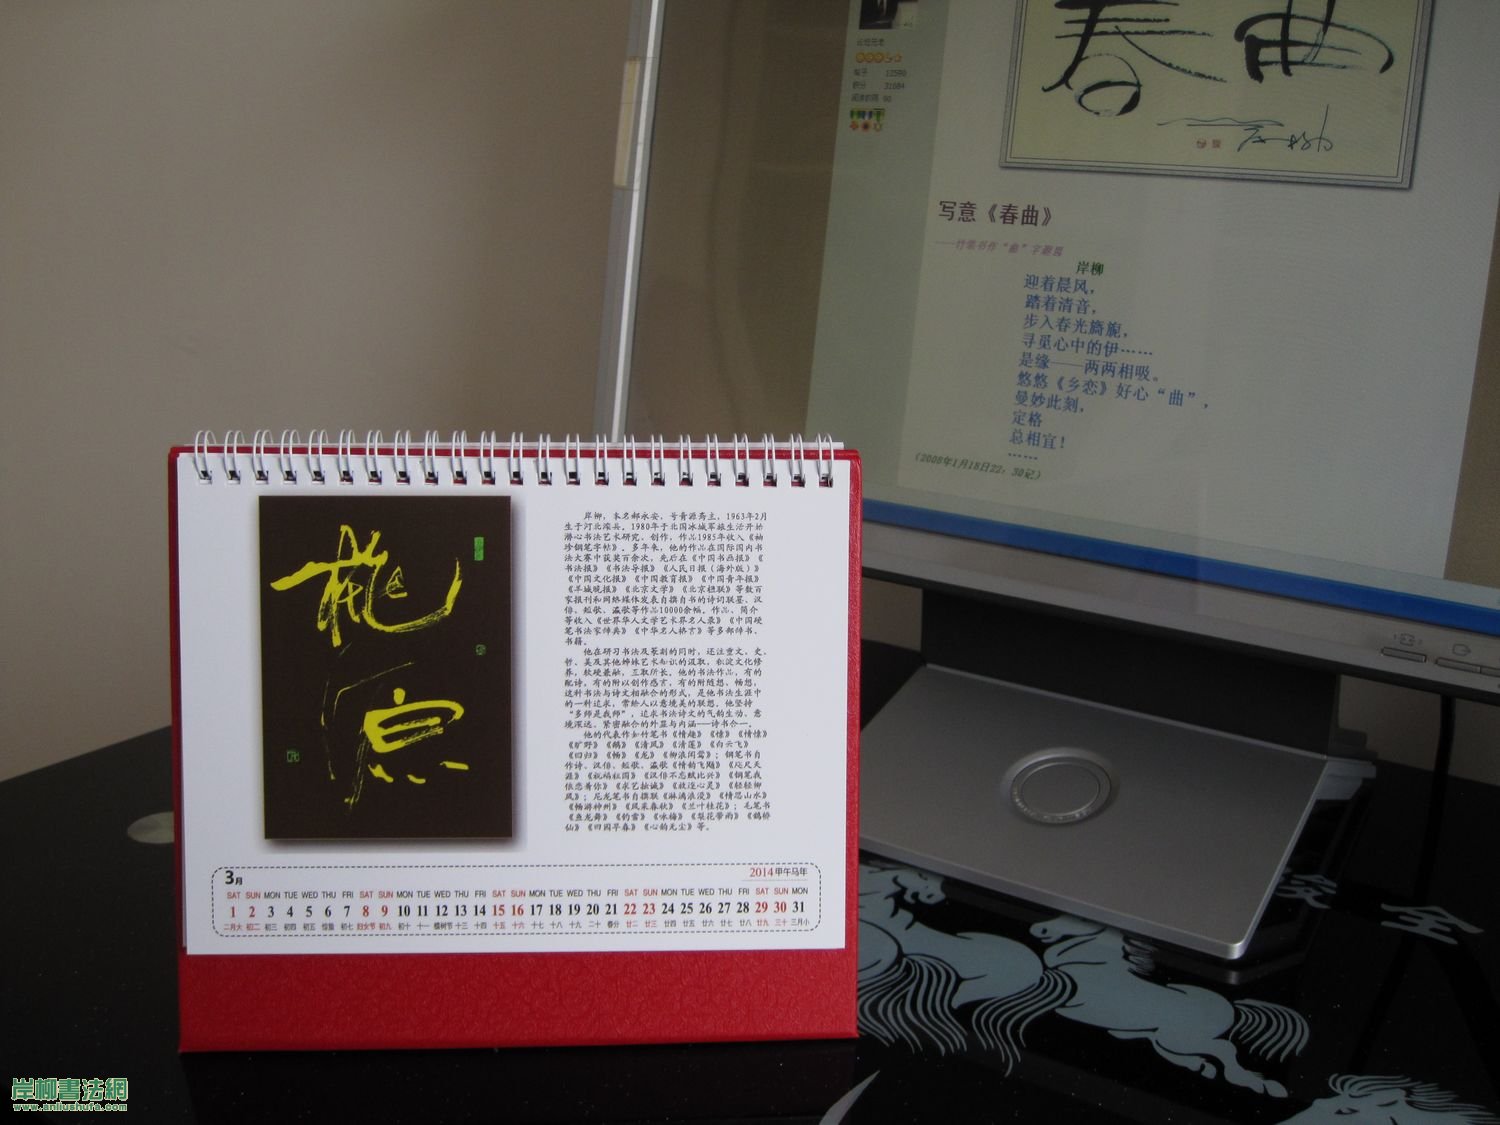 春曲
岸柳
12590
31684
90
写意《春曲》
——竹笔书作“曲”字题写
岸柳
迎着晨风，
踏着清音，
步入春光旖旎，
寻觅心中的伊……
是缘——两两相吸。
悠悠《乡恋》好心“曲”，
曼妙此刻，
定格
总相宜！
……
（2008年1月18日22：30记）
岸柳，本名郝永安，号青源斋主，1963年2月
生于河北滦县。1980年于北国冰城军旅生活开始
潜心书法艺术研究、创作，作品1985年收入《袖
珍钢笔字帖》。多年来，他的作品在国际国内书
法大赛中获奖百余次，先后在《中国书画报》《
书法报》《书法导报》《人民日报（海外版）》
《中国文化报》《中国教育报》《中国青年报》
《羊城晚报》《北京文学》《北京楹联》等数百
家报刊和网络媒体发表自撰自书的诗词联墨、汉
俳、短歌、瀛歌等作品10000余幅。作品、简介
等收入《世界华人文学艺术界名人录》《中国硬
笔书法家辞典》《中华名人格言》等多部辞书、
书籍。
他在研习书法及篆刻的同时，还注重文、史、
哲、美及其他姊妹艺术知识的汲取，积淀文化修
养，软硬兼融，三取所长。他的书法作品，有的
配诗，有的附以创作感言，有的附随想、畅想，
这种书法与诗文相融合的形式，是他书法生涯中
的一种追求，常给人以意境美的联想。他坚持
“多师是我师”，追求书法诗文的气韵生动、意
境深远、紧密融合的外显与内涵——诗书合一。
他的代表作如竹笔书《情趣》《憬》《情愫》
《旷野》《鹅》《清风》《清莲》《白云飞》
《回归》《畅》《龙》《柳浪闻莺》；钢笔书自
作诗、汉俳、短歌、瀛歌《情韵飞飏》《咫尺天
涯》《祝福祖国》《汉俳不忘赋比兴》《钢笔我
依恋着你》《求艺拙诚》《放逐心灵》《轻轻柳
风》；尼龙笔书自撰联《淋漓浪漫》《情思山水》
《畅游神州》《风采春秋》《兰叶桂花》；毛笔书
《鱼龙舞》《钓雪》《咏梅》《梨花带雨》《鹊桥
仙》《田园早春》《心韵无尘》等。
桃源
3月
2014甲午马年
SAT SUN MON TUE WED THU FRI SAT SUN MON TUE WED THU FRI SAT SUN MON TUE WED THU FRI SAT SUN MON TUE WED THU FRI SAT SUN MON
1 2 3 4 5 6 7 8 9 10 11 12 13 14 15 16 17 18 19 20 21 22 23 24 25 26 27 28 29 30 31
二月大 初二 初三 初四 初五 惊蛰 初七 妇女节 初九 初十 十一 植树节 十三 十四 十五 十六 十七 十八 十九 二十 春分 廿二 廿三 廿四 廿五 廿六 廿七 廿八 廿九 三十 三月小
全
岸柳書法網
www.anliushufa.com